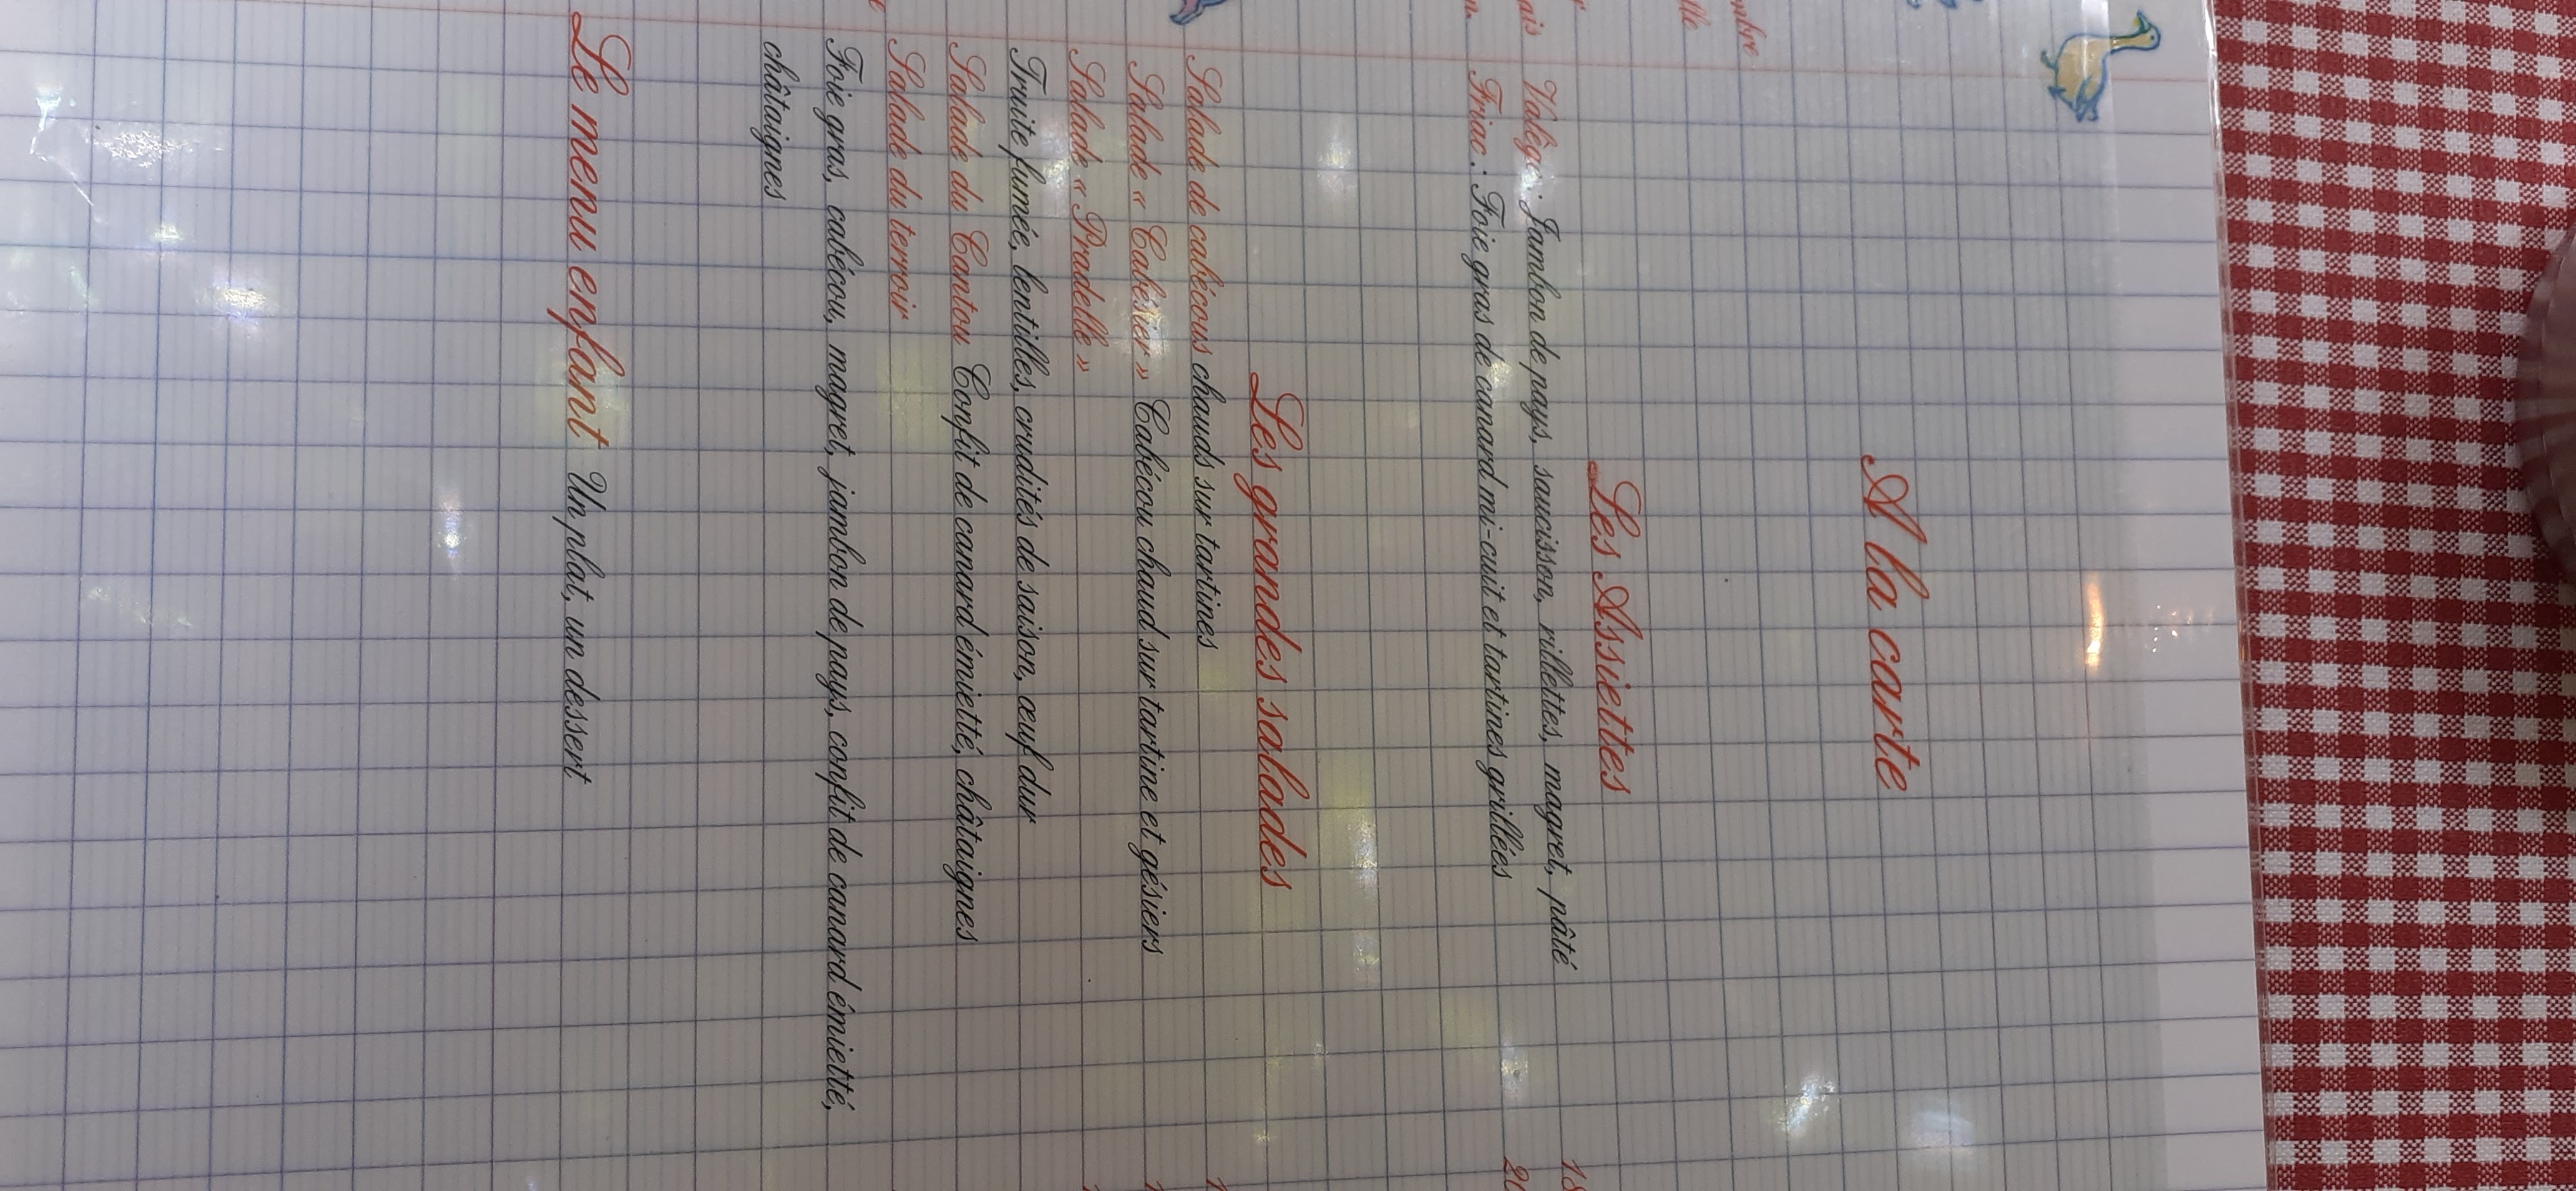 A la carte
Les Assiettes
Valéga : Jambon de pays, saucisson, rillettes, magret, pâté
Friac : Foie gras de canard mi-cuit et tartines grillées
Les grandes salades
Salade de cabécous chauds sur tartines
Salade « Cabésier » Cabécou chaud sur tartine et gésiers
Salade « Pradelle »
Truite fumée, lentilles, crudités de saison, œuf dur
Salade du Cantou Confit de canard émietté, châtaignes
Salade du terroir
Foie gras, cabécou, magret, jambon de pays, confit de canard émietté,
châtaignes
Le menu enfant Un plat, un dessert